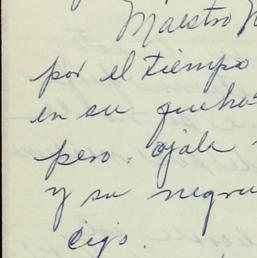 Maestro
por el tiempo
en su queha
pero. ojala
y su negra
cijo.